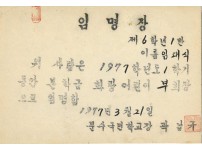 임명장
제6학년1반
이름 임대식
위 사람은 1977학년도 1학기
동안 본 학급 회장 어린이 부회장
으로 임명함
1977년 3월 21일
국민학교장